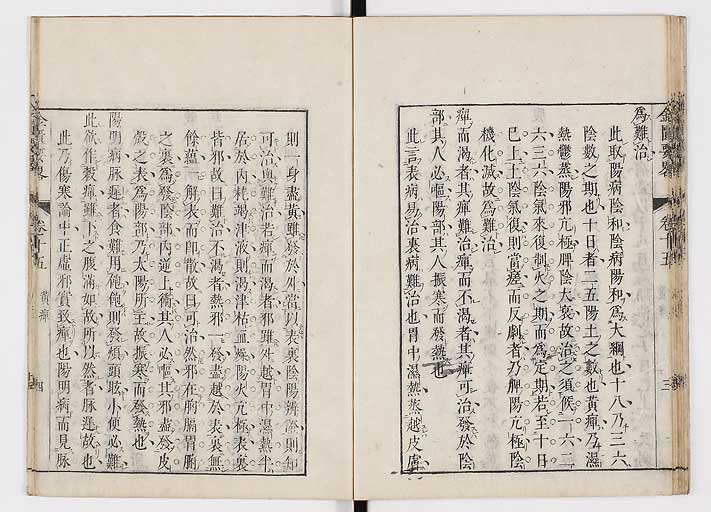 為難治
此取陽病陰和陰病陽和為大綱也十八乃三六
陰數之期也十日者二五陽土之數也黃癉乃濕
熱鬱蒸陽邪亢極脾陰大衰故治之須候一六二
六三六陰氣來復制火之期而為定期若至十日
已上土陰氣復則當瘥而反劇者乃脾陽亢極陰
機化滅故為難治
癉而渴者其癉難治癉而不渴者其癉可治發於陰
部其人必嘔陽部其人振寒而發熱也
此言表病易治裏病難治也胃中濕熱蒸越皮膚
則一身盡黃雖發於外當以表裏陰陽辨證則知
可治與難治若癉而渴者邪雖外越胃中濕熱半
居於內耗竭津液則渴津枯血燥陽火亢極表裏
皆邪故曰難治不渴者熱邪一發盡越於表裏無
餘蘊一解表而即散故曰可治然邪在胸膈胃腑
之裏為發陰部內逆上衝其人必嘔其邪盡發皮
殼之表為陽部乃太陽所主故振寒而發熱也
陽明病脉遲者食難用飽飽則發煩頭眩小便必難
此欲作穀癉雖下之腹滿如故所以然者脉遲故也
此乃傷寒論中正虛邪實致癉也陽明病而見脉
金匱要略
卷十五
三
金匱要略
卷十五
黃癉
四